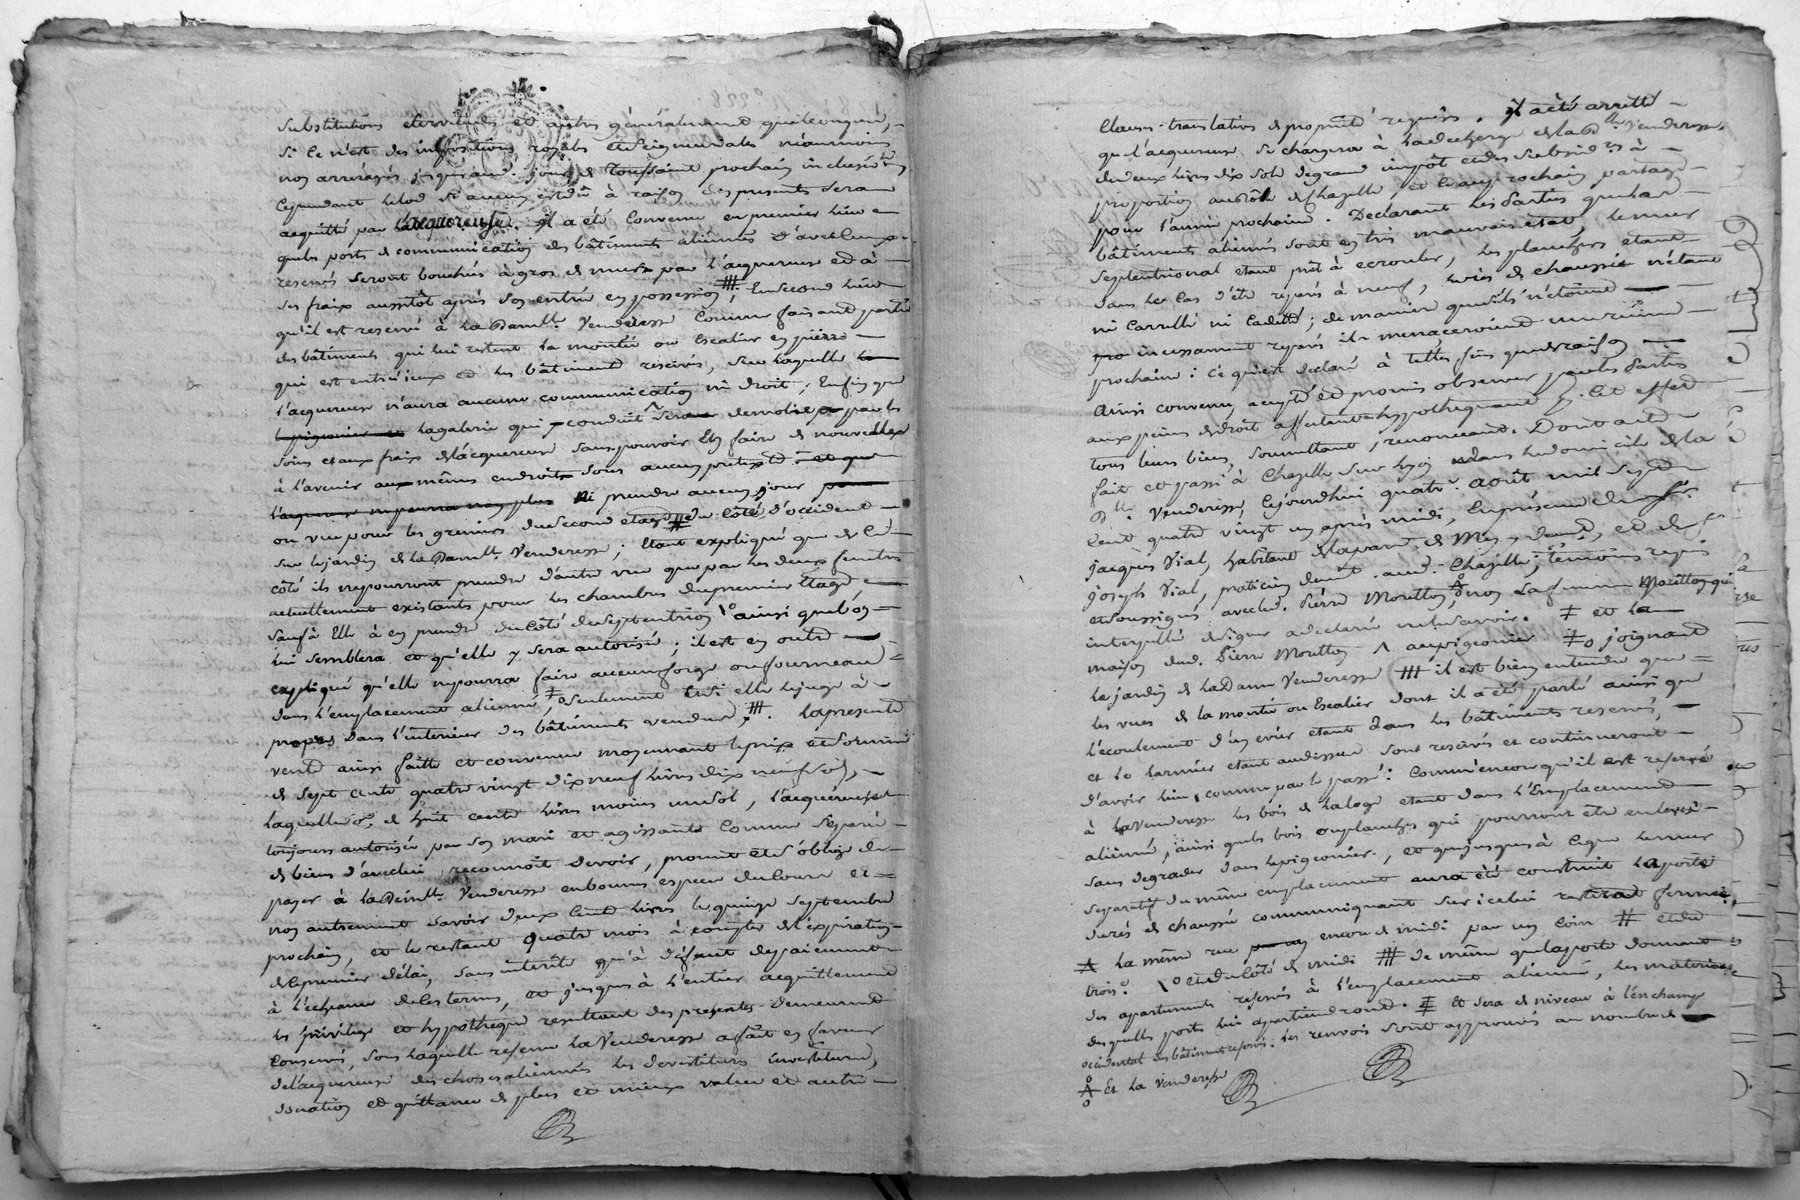 substitutions et autres généralement quelconques,
si ce n'est des impositions royales et seigneuriales néanmoins
non arreragés jusqu'au jour de Toussaint prochain inclusiv
cependant le lod si aucun est dû à raison des presentes sera
acquitté par l'acquereuse. il a été convenu en premier lieu
que les ports de communication des bâtiments aliennés d'avec ceux
reservés seront bouchés à gros de murs par l'acquereuse et à
ses fraix aussitôt après son entrée en possession ; en second lieu
qu'il est reservé à la Damlle Venderesse comme faisant partie
des bâtiments qui lui restent la montée ou Escalier en pierre
qui est entr'iceux et les bâtiments reservés, sur laquelle
l'acquereuse n'aura aucune communication ni droit ; Enfin que
la galerie qui conduit sera demolise par les
soins et aux fraix de l'acquereuse sans pouvoir En faire de nouvelles
à l'avenir aux mêmes endroits sous aucun pretexte
ni prendre aucun jour
ou vue pour les greniers du second etage du côté d'occident
sur le jardin de la Damlle Venderesse ; Etant expliqué que de ce
côté ils ne pourront prendre d'autre vue que par les deux fenêtres
actuellement existants pour les chambres du premier Etage
sauf à Elle à en prendre du côté du septentrion ainsi que bon
lui semblera et qu'elle y sera autorisée ; il est en outre
expliqué qu'elle ne pourra faire aucun forge ou fourneau
dans l'emplacement alienné, seulement si elle le juge à
propos dans l'interieur des bâtiments vendus. La presente
vente ainsi faitte et convenue moyennant le prix et somme
de sept cents quatre vingt dix neuf livres dix neuf sols,
laquelle de huit cents livres moins un sol, l'acquereuse
toujours autorisée par son mari et agissante comme séparée
de biens d'avec lui reconnoit devoir, promet et s'oblige de
payer à la Demlle Venderesse en bonnes especes du cours et
non autrement savoir deux cents livres le quinze septembre
prochain, et le restant quatre mois à compter de l'expiration
de le premier délai, sans intérêts qu'à défaut de paiement
à l'echeance de les termes, et jusques à l'entier acquittement
les privilege et hypotheque resultant des presentes demeurent
conservés, sous laquelle reserve la Venderesse a fait en faveur
de l'acquereuse des choses aliennées les devestitures investitures,
donation et quittance de plus et mieux value et autre
Clauses translatives de propriété requises. il a été arretté
que l'acquereuse se chargera à la decharge de la Dlle Venderesse
de deux livres dix sols de grand impôt et des subsides à
proportion au rôle de Chazelle, et le au prochain partage
pour l'année prochaine. Declarant les Parties que les
bâtiments aliennés sont en très mauvais état, le mur
septentrional etant prêt à ecrouler, les planchers etant
dans le cas d'être reparés à neuf, le rés de chaussée n'étant
ni carrellé ni cadetté ; de manière que s'ils n'étoient
incessament reparés ils menaceroient une ruine
prochaine : ce qui est declaré à telles fins que de raison
Ainsi convenu, accepté et promis observer par les Parties
aux peines de droit affectant et hypothequant cet effet
tous leurs biens, soumettant, renonceant. Dont acte
fait et passé à Chazelle sur Lyon dans le domicile de la
Dlle Venderesse, cejourdhui quatre Août mil sept
cent quatre vingt un après midi, En presence de sr
jacques Vial, habitant de la par. de Mey, et de sr
joseph Vial, praticien demt. aud. Chazelle, temoins requis
et soussignés avec led. Pierre Moretton, non la femme Moretton qui
interpellée de signer a declaré ne le savoir. et la
maison dud. Pierre Moretton au pigeonier joignant
le jardin de la Dame Venderesse il est bien entendu que
les vues de la montée ou Escalier dont il a été parlé ainsi que
l'écoulement d'un evier etant dans les bâtiments reservés,
et le larmier etant audessus sont reservés et continueront
d'avoir lieu, comme par le passé : comm'encore qu'il est reservé
à la Venderesse les bois de la loge etant dans l'Emplacement
alienné, ainsi que les bois ou planches qui pourront être enlevés
sans degrader dans le pigeonier, et que jusques à ce que le mur
separatif du même emplacement aura été construit la porte
du rés de chaussée communiquant sur icelui restera fermée,
la même rue encore de midi par un coin et du
trois. et du côté de midi de même que la porte donnant
des apartements reservés à l'emplacement alienné, les materiaux
desquelles ports lui apartiendront. et sera de niveau à l'enchange
occidental des bâtiments reservés. les renvois sont approuvés au nombre de
et la Venderesse